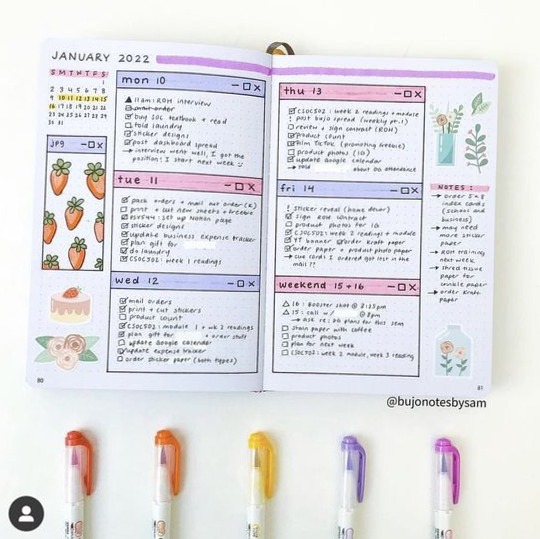 JANUARY 2022
S M T W T F S
1
2 3 4 5 6 7 8
9 10 11 12 13 14 15
16 17 18 19 20 21 22
23 24 25 26 27 28 29
30 31
jpg
mon 10
11am: ROM interview
mail order
buy SOC textbook + read
fold laundry
sticker designs
post dashboard spread
→ interview went well, I got the
position! I start next week :)
tue 11
pack orders + mail out order (K)
print + cut new sheets + freebie
: set up Notion page
sticker designs
update business expense tracker
plan gift for
do laundry
CSOC502: week 1 readings
wed 12
mail orders
print + cut stickers
product count
CSOC502: module 1 + wk 2 readings
plan gift for + order stuff
update Google calendar
update expense tracker
order sticker paper (both types)
80
thu 13
CSOC502: week 2 readings + module
! post bujo spread (weekly pt.1)
review + sign contract (ROM)
product count
film TikTok (promoting freebie)
product photos (10)
update Google calendar
→ told about DD attendance
fri 14
! sticker reveal (home decor)
sign ROM contract
product photos for IG
CSOC502: week 2 readings + module
YT banner order kraft paper
order paper + product photo paper
→ cue cards I ordered got lost in the
mail??
weekend 15+16
16: booster shot @ 8:25pm
15: call w/ @ 8pm
→ ask re: DD plans for this sem
stain paper with coffee
product photos
plan for next week
CSOC502: week 2 module, week 3 reading
NOTES:
→ order 5x8
index cards
(school and
business)
→ may need
more sticker
paper
→ ROM training
next week
→ shred tissue
paper for
crinkle paper
→ order kraft
paper
81
@bujonotesbysam